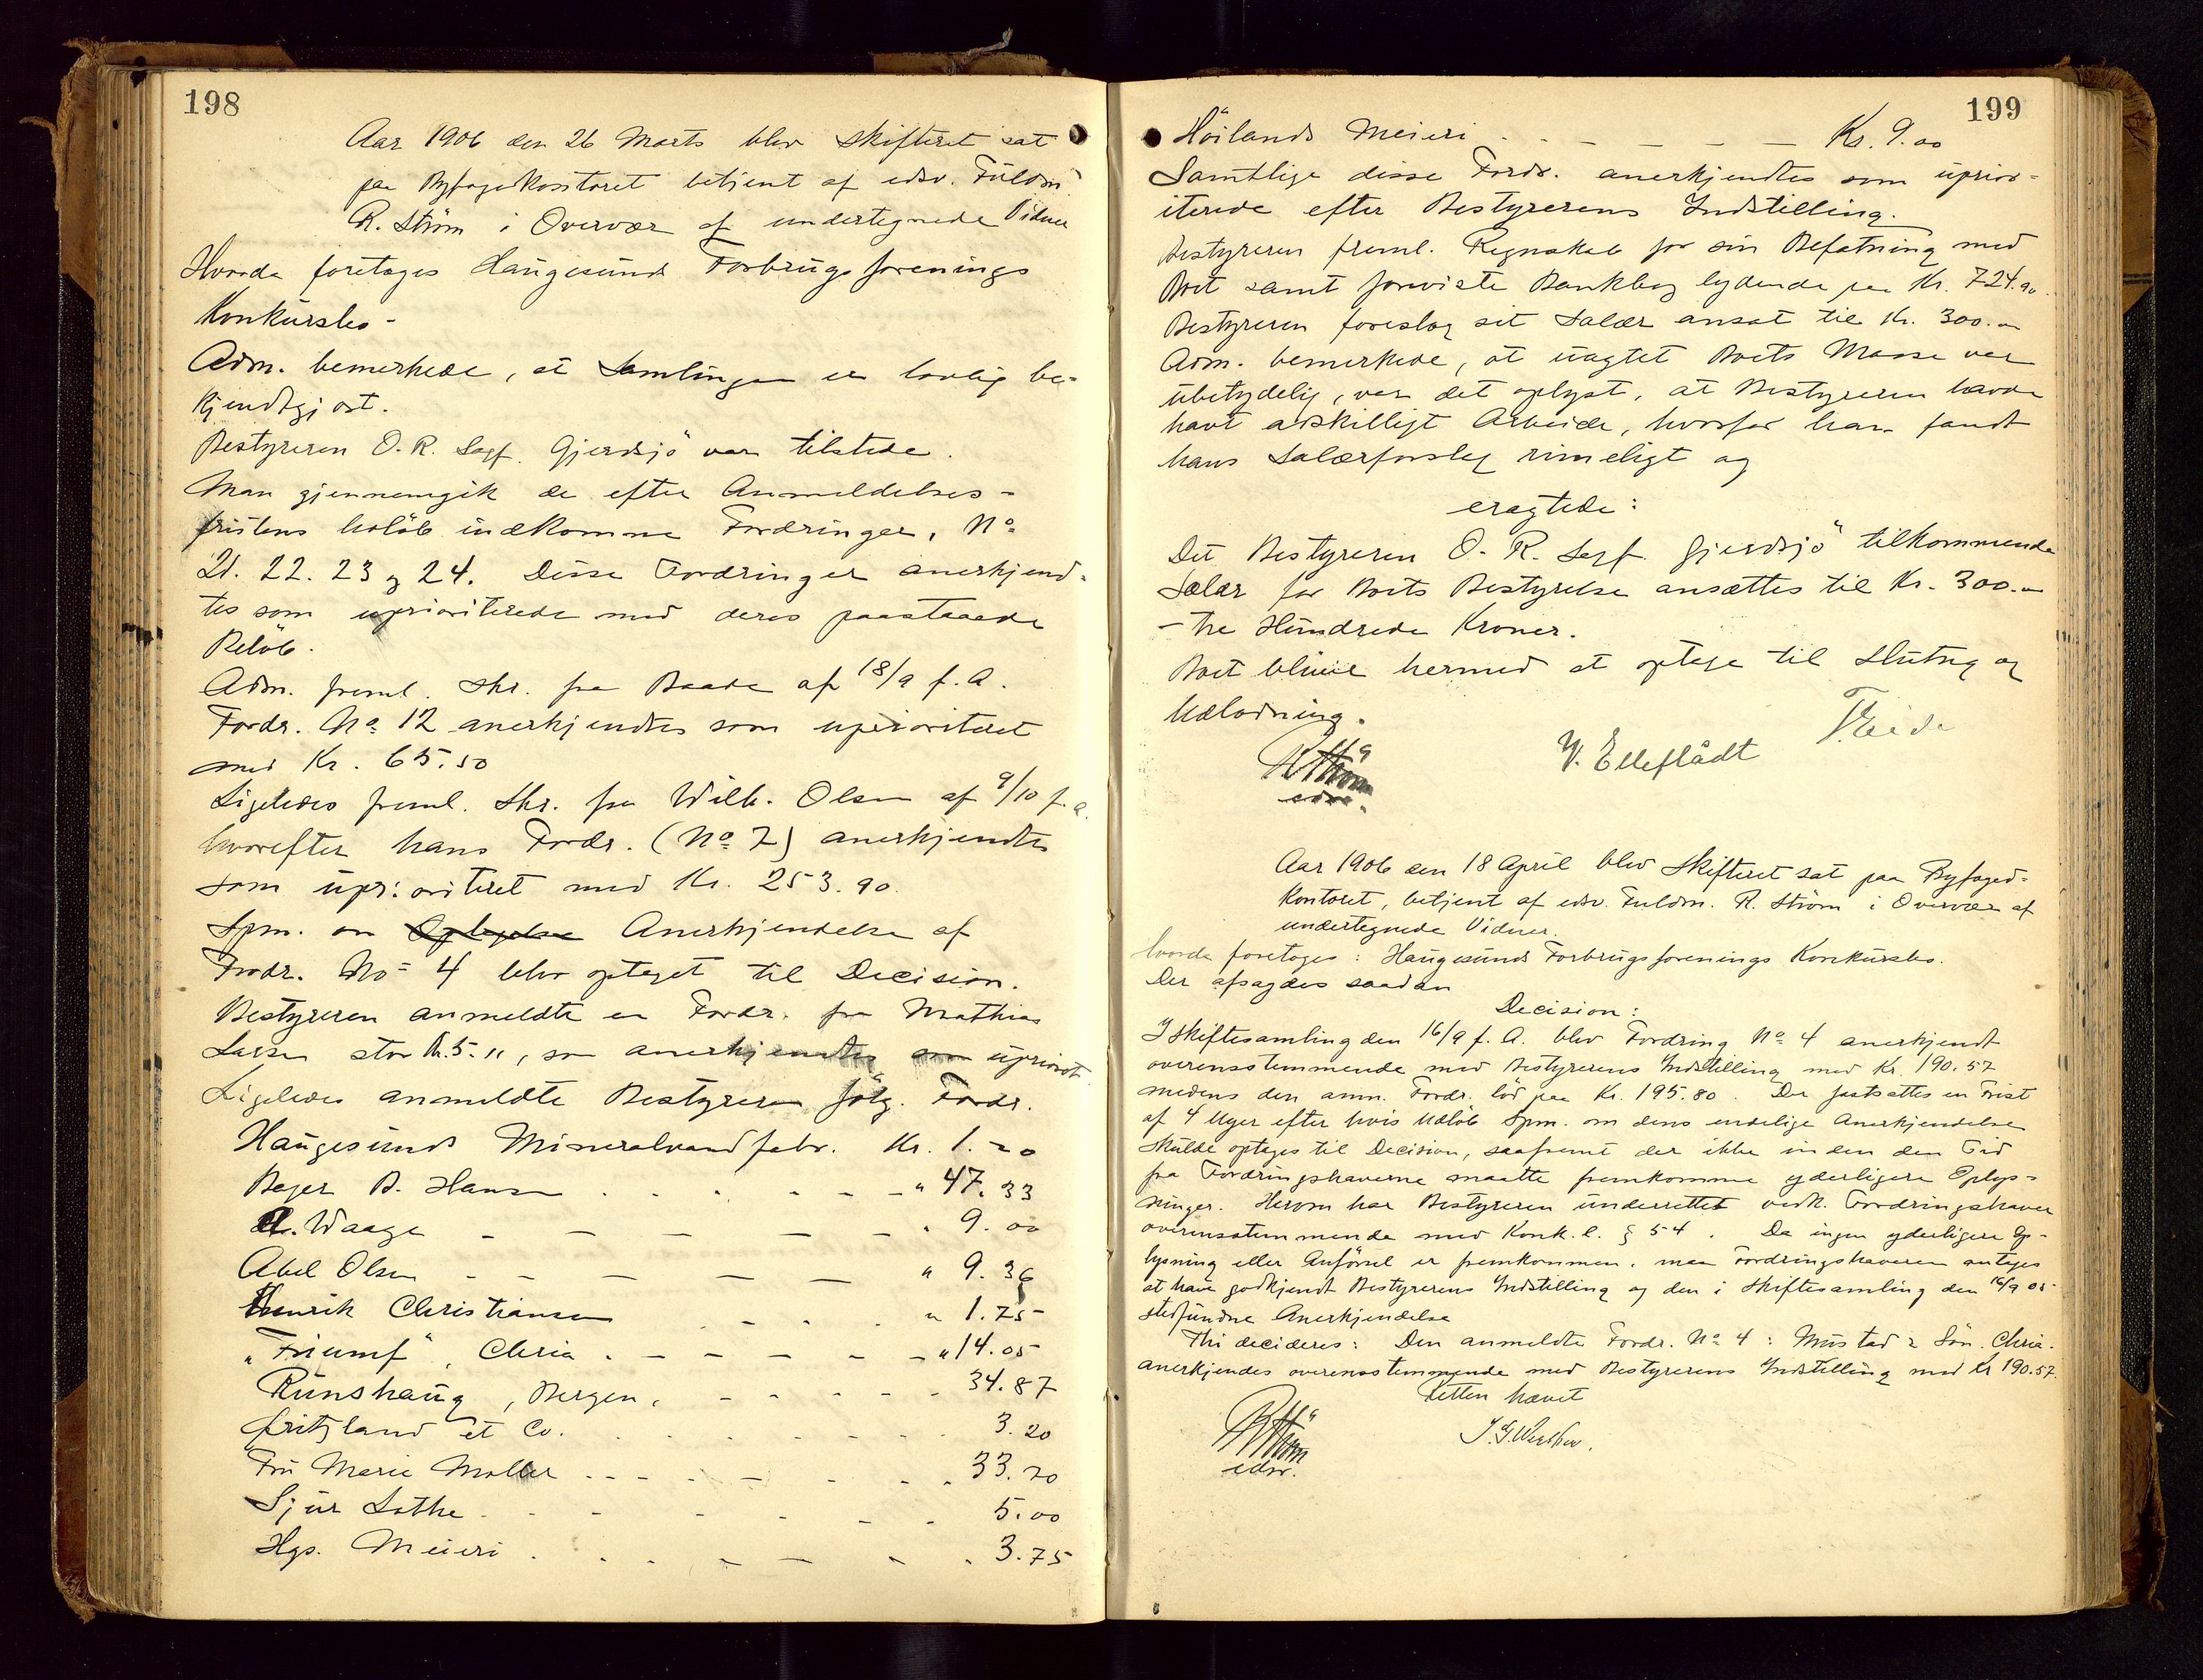 198
Aar 1906 den 26 Marts blev Skifteret sat
paa Byfogedkontoret betjent af edsv. Fuldm.
R. Ström i Overvær af undertegnede Vidner
Hvorda foretoges Haugesunds Forbrugsforenings
Konkursbo -
Adm. bemerkede, at Samlingen er lovlig be-
kjendtgjort.
Bestyreren O. R. Sagf. Gjerdsjö var tilstede.
Man gjennemgik de efter Anmeldelses-
fristens Udløb indkomne Fordringer, No
21. 22. 23 og 24. Disse Fordringer anerkjend-
tes som uprioriterede med deres paastaaede
Beløb.
Adm. freml. Skr. fra Baade af 18/9 f. A.
Fordr. No 12 anerkjendtes som uprioriteret
med Kr. 65.50
Ligeledes freml. Skr. fra Wilh. Olsen af 9/10 f. A.
hvorefter hans Fordr. (No 7) anerkjendtes
som uprioriteret med Kr. 253.90.
Spm. om Anerkjendelse af
Fordr. No 4 blev optaget til Decision.
Bestyreren anmeldte en Fordr. fra Mathias
Larsen stor Kr. 5.", som anerkjendtes som upriorit.
Ligeledes anmeldte Bestyreren følg. Fordr.
Haugesunds Mineralvandfabr. Kr. 1.20
Bager B. Hansen " 47.33
A. Waage " 9.00
Abel Olsen " 9.36
Henrik Christiansen " 1.75
"Triumf", Chria. " 14.05
Runshaug, Bergen, 34.87
Fritzland et Co. 3.20
Fru Marie Møller 33.70
Sjur Lothe 5.00
Hgs. Meieri 3.75
199
Höilands Meieri Kr. 9.00
Samtlige disse Fordr. anerkjendtes som uprior-
iterede efter Bestyrerens Indstilling.
Bestyreren freml. Regnskab for sin Befatning med
Boet samt foreviste Bankbog lydende paa Kr. 724.90.
Bestyreren foreslog sit Salær ansat til Kr. 300.00
Adm. bemerkede, at uagtet Boets Masse var
ubetydelig, var det oplyst, at Bestyreren havde
havt adskilligt Arbeide, hvorfor han fandt
hans Salærforslag rimeligt og
eragtede:
Det Bestyreren O. R. Sagf. Gjerdsjö tilkommende
Salær for Boets Bestyrelse ansættes til Kr. 300.00
- tre Hundrede Kroner.
Boet bliver hermed at optage til Slutng og
Udlodning.
R Ström
edsv.
V. Elleflådt
T Eide
Aar 1906 den 18 April blev Skifteret sat paa Byfoged-
kontoret, betjent af edsv. Fuldm. R. Ström i Overvær af
undertegnede Vidner.
hvorda foretoges: Haugesunds Forbrugsforenings Konkursbo.
Der afsagdes saadan
Decision:
I Skiftesamling den 16/9 f. A. blev Fordring No 4 anerkjendt
overensstemmende med Bestyrerens Indstilling med Kr. 190.57
medens den anm. Fordr. lød paa Kr. 195.80. Der fastsattes en Frist
af 4 Uger efter hvis Udløb Spm. om dens endelige Anerkjendelse
skulde optages til Decision, saafremt der ikke inden den Tid
fra Fordringshaverne maatte fremkomme yderligere Oplys-
ninger. Herom har Bestyreren underrettet vedk. Fordringshaver
overensstemmende med Konk. l. § 54. Da ingen yderligere Op-
lysning eller Anførsel er fremkommen, maa Fordringshaveren antages
at have godkjendt Bestyrerens Indstilling og den i Skiftesamling den 16/9 05
stedfundne Anerkjendelse
Thi decideres: Den anmeldte Fordr. No 4: Mustad & Søn. Chria.
anerkjendes overensstemmende med Bestyrerens Indstilling med Kr 190.57.
Retten hævet
R Ström
edsv.